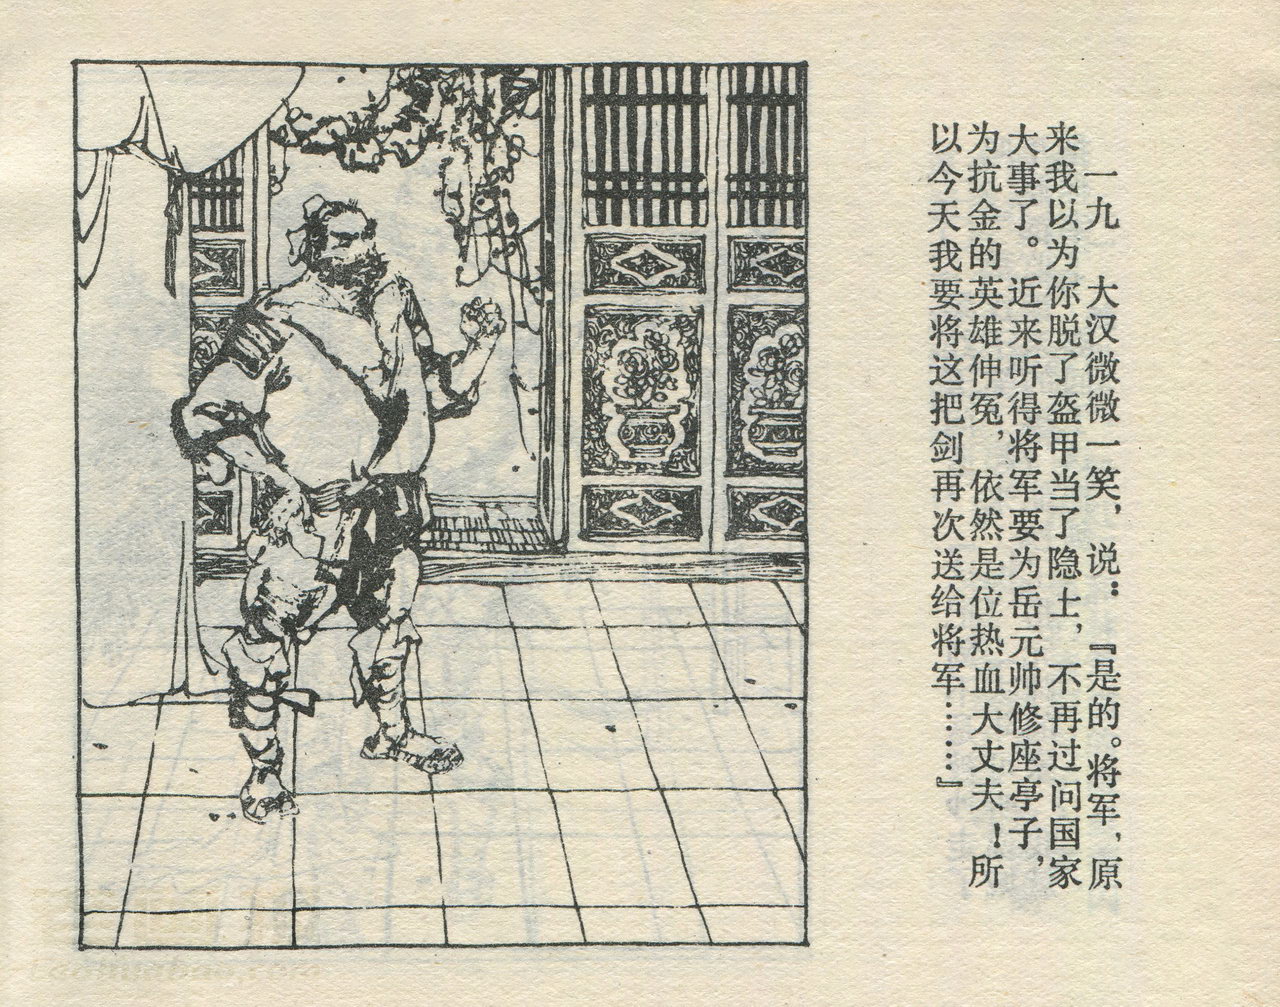 一九　大汉微微一笑，说：『是的。将军，原
来我以为你脱了盔甲当了隐士，不再过问国家
大事了。近来听得将军要为岳元帅修座亭子，
为抗金的英雄伸冤，依然是位热血大丈夫！所
以今天我要将这把剑再次送给将军……』